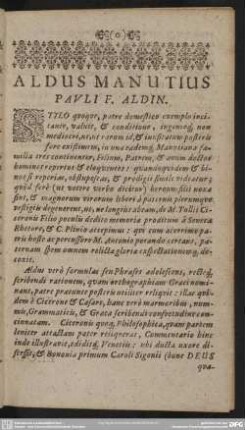 ALDUS MANUTIUS
PAVLI F. ALDIN.
STYLO quoque, patre domestico exemplo inci-
tante, valuit, & conditione, ingenioq, non
mediocri, at, ut rarum id, & inusitatum posteris
fore existimem, in una eademq, Manutiana fa-
milia tres continenter, Filium, Patrem, & avum doctos
dumtaxat reperies & eloquentes: quandoquidem & bi-
nos si reperias, obstupescas, & prodigii simile videatur:
quod ferè (ut vetere verbo dicitur) heroum filii noxa
sint, & magnorum virorum liberi à paternis plerumque
vestigiis degenerent, ac, ne longius abeam, de M. Tullii Ci-
ceronis Filio posulis dedito memoria proditum à Seneca
Rhetore, & C. Plinio accepimus: qui cum acerrimo pa-
tris hoste ac percussore M. Antonio potando certans, pa-
ternam spem omnem relicta gloria insectationemq, di-
cavit.
Aldus verò formulas seu Phrases adolescens, rectèq,
scribendi rationem, quam orthographiam Graci nomi-
nant, patre praeunte posteris utiliter reliquit: illas qui-
dem è Cicerone & Cæsare, hanc verò marmoribus, num-
mis, Grammaticis, & Grata scribendi consvetudine ra-
tionatam. Ciceronis quoq, Philosophica, quam partem
leviter attactam pater reliquerat, Commentario hinc
inde illustravit, ediditq, Venetiis: ubi ducta uxore di-
scessit, & Bononia primum Caroli Sigonii (hunc DEUS
qua-